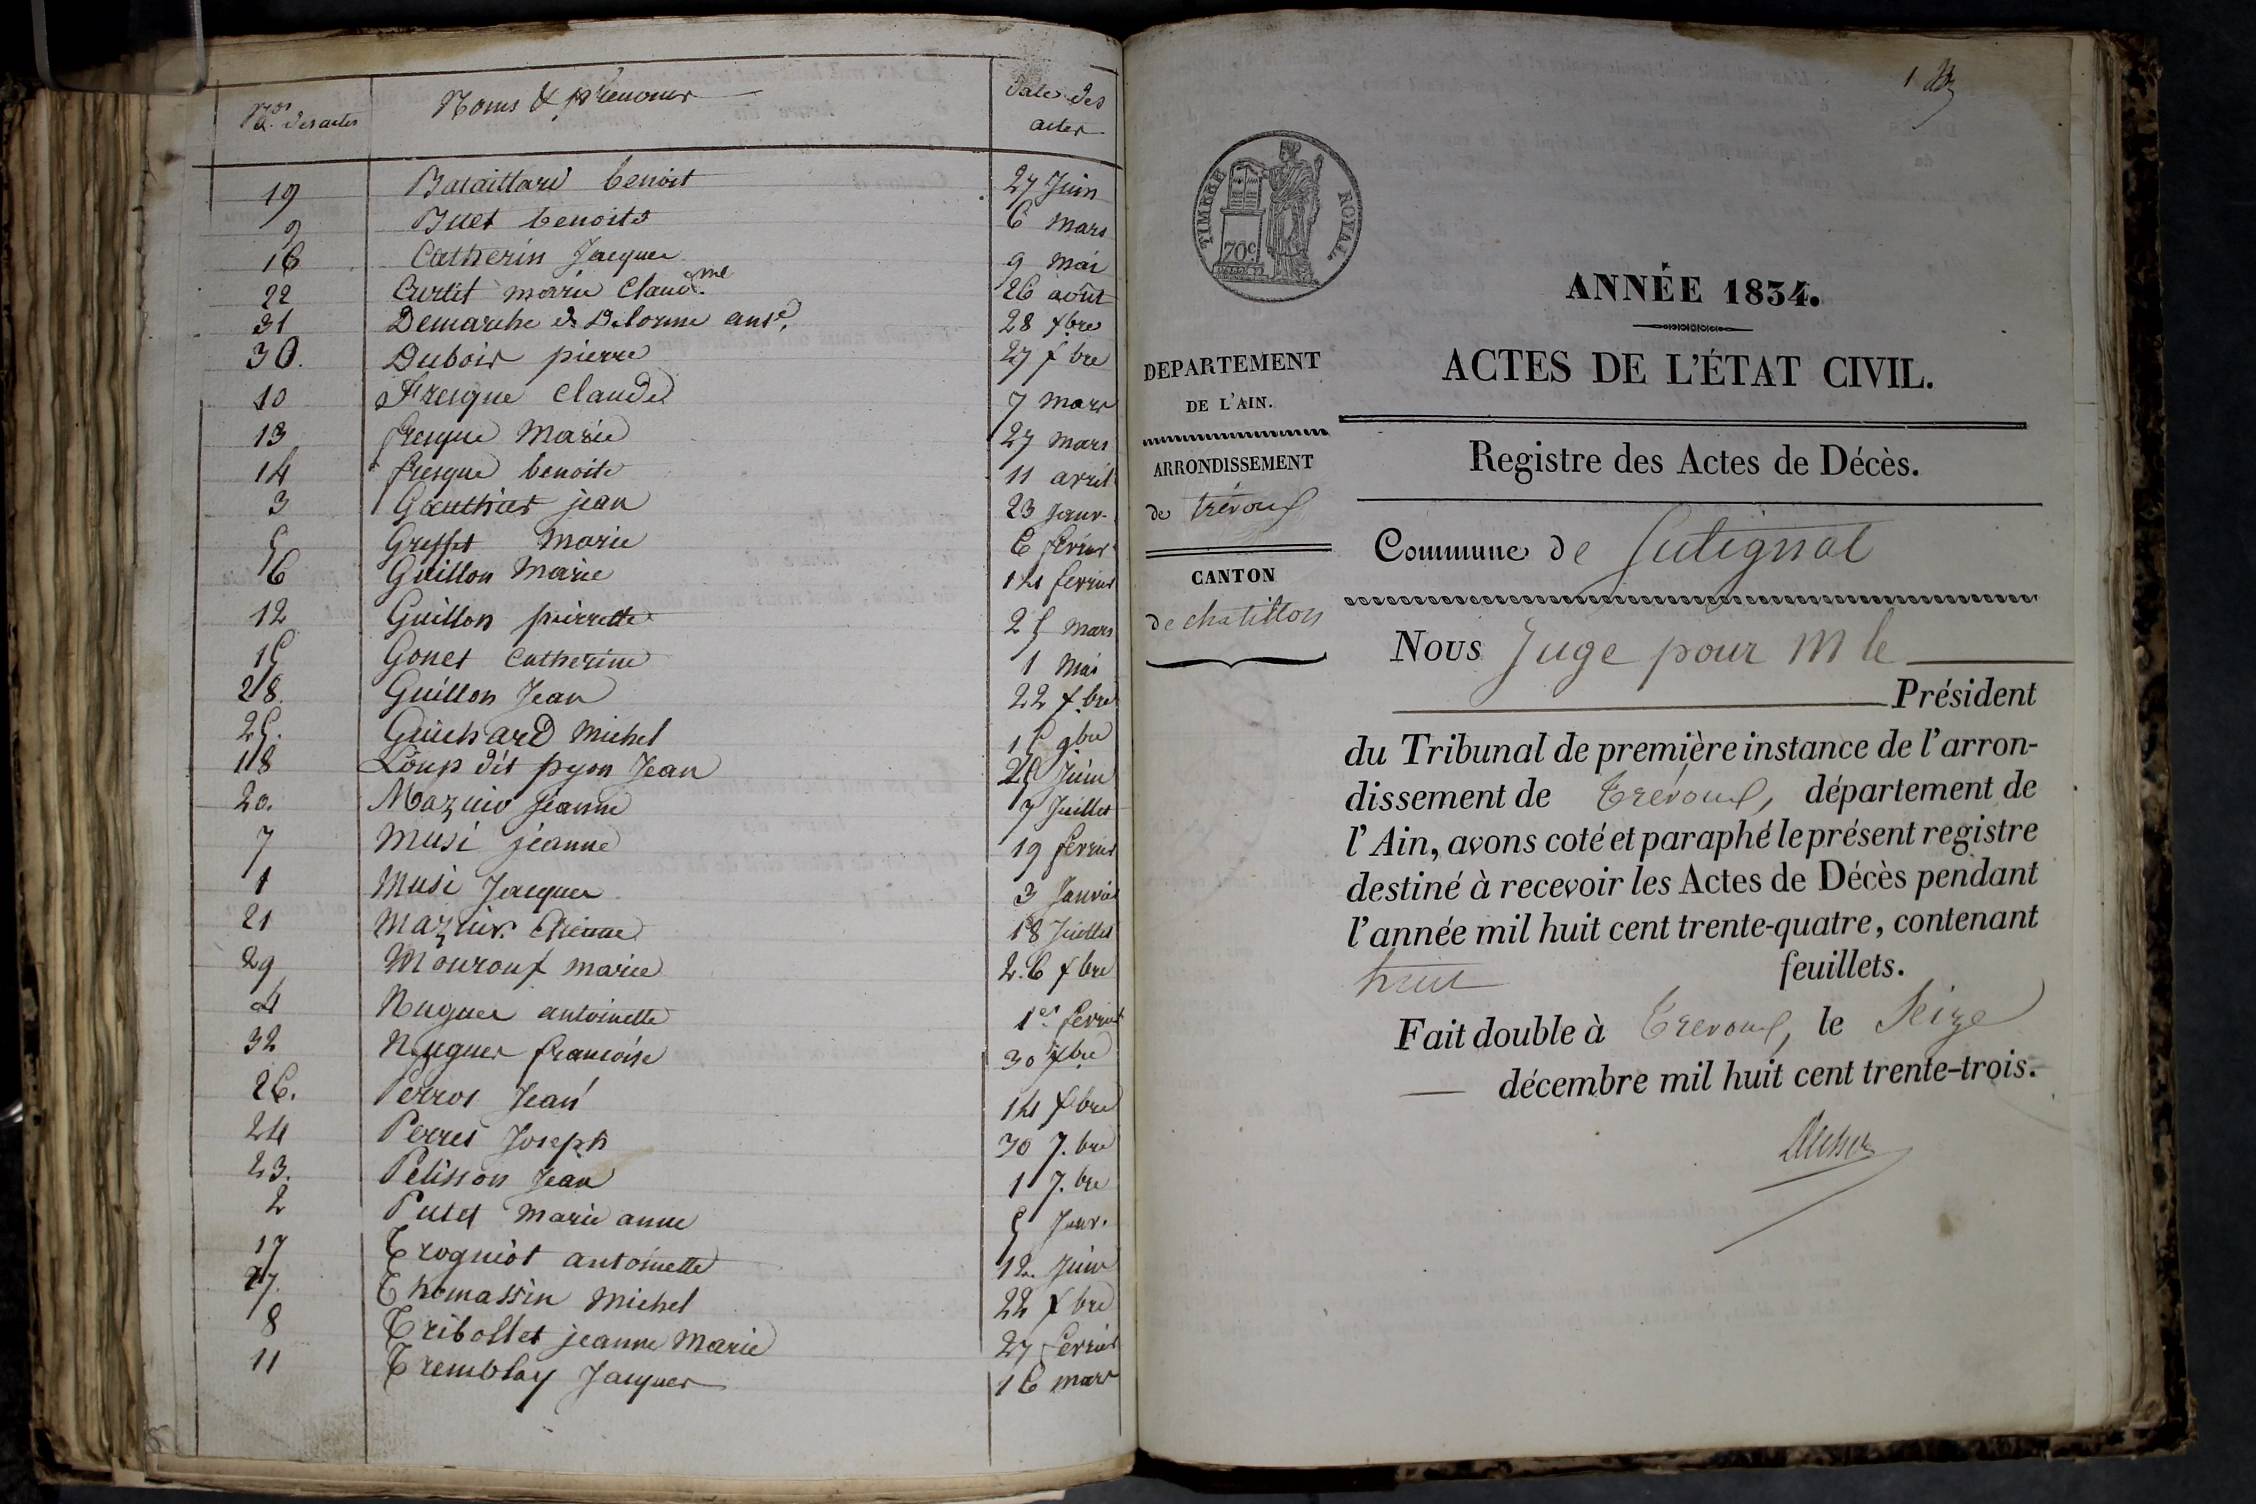 Nos des actes
Noms & prénoms
Date des
actes
19 Bataillard benoit 27 Juin
9 Buet benoite 6 mars
16 Catherin Jacques 9 mai
22 Curtet marie Claud.me 26 août
31 Demarche & Delorme ansd. 28 xbre
30. Dubois pierre 27 xbre
10 Fresque Claude 7 mars
13 fresque Marie 27 mars
14 fresque benoite 11 avril
3 Gauthier jean 23 Janv.
5 Greffet Marie 6 fevrier
6 Guillon Marie 14 fevrier
12 Guillon pierrette 25 mars
15 Gonet Catherine 1 Mai
28. Guillon Jean 22 xbre
25. Guichard Michel 15 9bre
18 Loup dit pyon Jean 25 Juin
20. Mazuir Jeanne 7 Juillet
7 Musi jeanne 19 fevrier
1 Musi Jacques 3 Janvier
21 Mazuir Etienne 18 Juillet
29 Mouroux marie 26 xbre
4 Nugues antoinette 1er fevrier
32 Nugues francoise 30 xbre
26. Perros Jean 14 xbre
24 Perret Joseph 30 7.bre
23. Pelisson Jean 1 7.bre
2 Putet marie anne 5 Janv.
17 Trogniot antoinette 12. Juin
27. Thomassin Michel 22 xbre
8 Tribollet jeanne Marie 27 fevrier
11 Tremblay Jacques 16 mars
1
TIMBRE ROYAL
70c
ANNÉE 1834.
ACTES DE L'ÉTAT CIVIL.
DEPARTEMENT
DE L'AIN.
ARRONDISSEMENT
de trévoux
CANTON
de chatillon
Registre des Actes de Décès.
Commune de Sulignat
Nous Juge pour M le
Président
du Tribunal de première instance de l'arron-
dissement de Trévoux, département de
l'Ain, avons coté et paraphé le présent registre
destiné à recevoir les Actes de Décès pendant
l'année mil huit cent trente-quatre, contenant
huit feuillets.
Fait double à Trevoux, le Seize
décembre mil huit cent trente-trois.